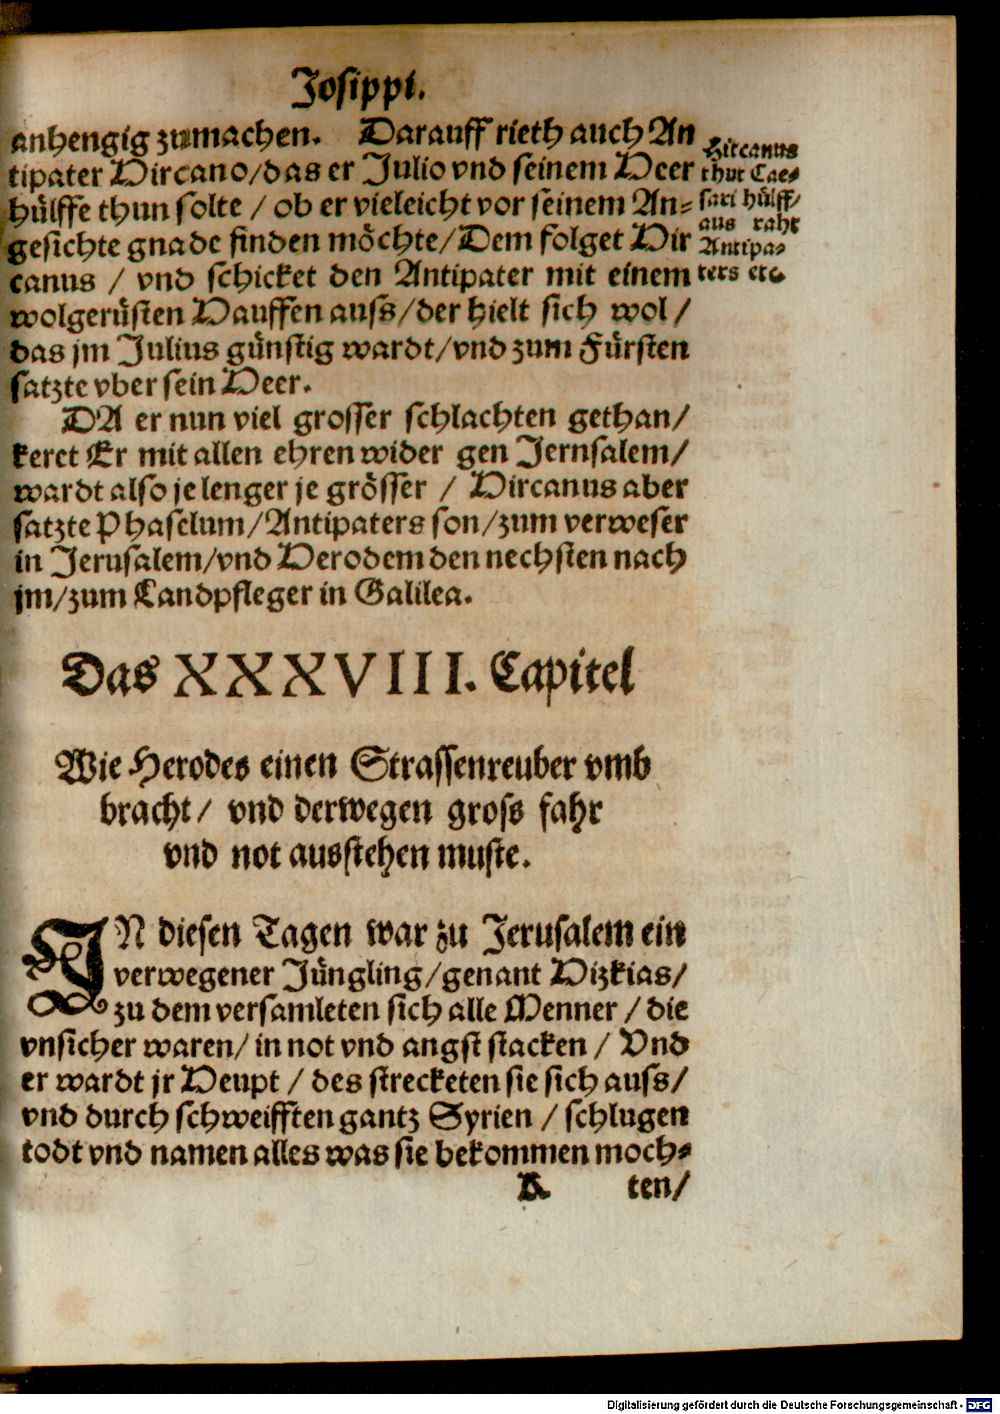 Josippi.
anhengig zumachen. Darauff rieth auch An
tipater Hircano/das er Julio vnd seinem Heer
hülffe thun solte / ob er vieleicht vor seinem An-
gesichte gnade finden möchte/Dem folget Hir
canus / vnd schicket den Antipater mit einem
wolgerüsten Hauffen auss/der hielt sich wol /
das jm Julius günstig wardt/vnd zum Fürsten
satzte vber sein Heer.
Hircanus
thut Cae-
sari hülff/
aus raht
Antipa-
ters etc.
DA er nun viel grosser schlachten gethan/
keret Er mit allen ehren wider gen Jernsalem/
wardt also je lenger je grösser / Hircanus aber
satzte Phaselum/Antipaters son/zum verweser
in Jerusalem/vnd Herodem den nechsten nach
jm/zum Landpfleger in Galilea.
Das XXXVIII. Capitel
Wie Herodes einen Strassenreuber vmb
bracht/ vnd derwegen gross fahr
vnd not ausstehen muste.
IN diesen Tagen war zu Jerusalem ein
verwegener Jüngling/genant Hizkias/
zu dem versamleten sich alle Menner / die
vnsicher waren/ in not vnd angst stacken / Vnd
er wardt jr Heupt / des strecketen sie sich auss/
vnd durch schweifften gantz Syrien / schlugen
todt vnd namen alles was sie bekommen moch-
K ten/
Digitalisierung gefördert durch die Deutsche Forschungsgemeinschaft - DFG